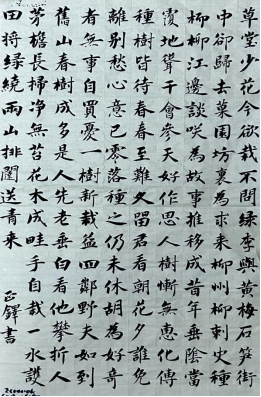 草堂少花今欲栽不問綠李與黃梅石笋街
中卻歸去果園坊裏為求來柳州柳刺史種
柳柳江邊談咲為故事推移成昔年垂陰當
覆地聳干會參天好作思人樹慚無惠化傳
種樹皆待春春至難久留君看朝花夕誰免
離別愁心意已零落種之仍未休胡為好奇
者無事自買憂一樹新栽益四鄰野夫如到
舊山春樹成多是人先老垂白看他攀折人
茅檐長掃淨無苔花木成畦手自栽一水護
田將綠繞兩山排闥送青來
正鐸書